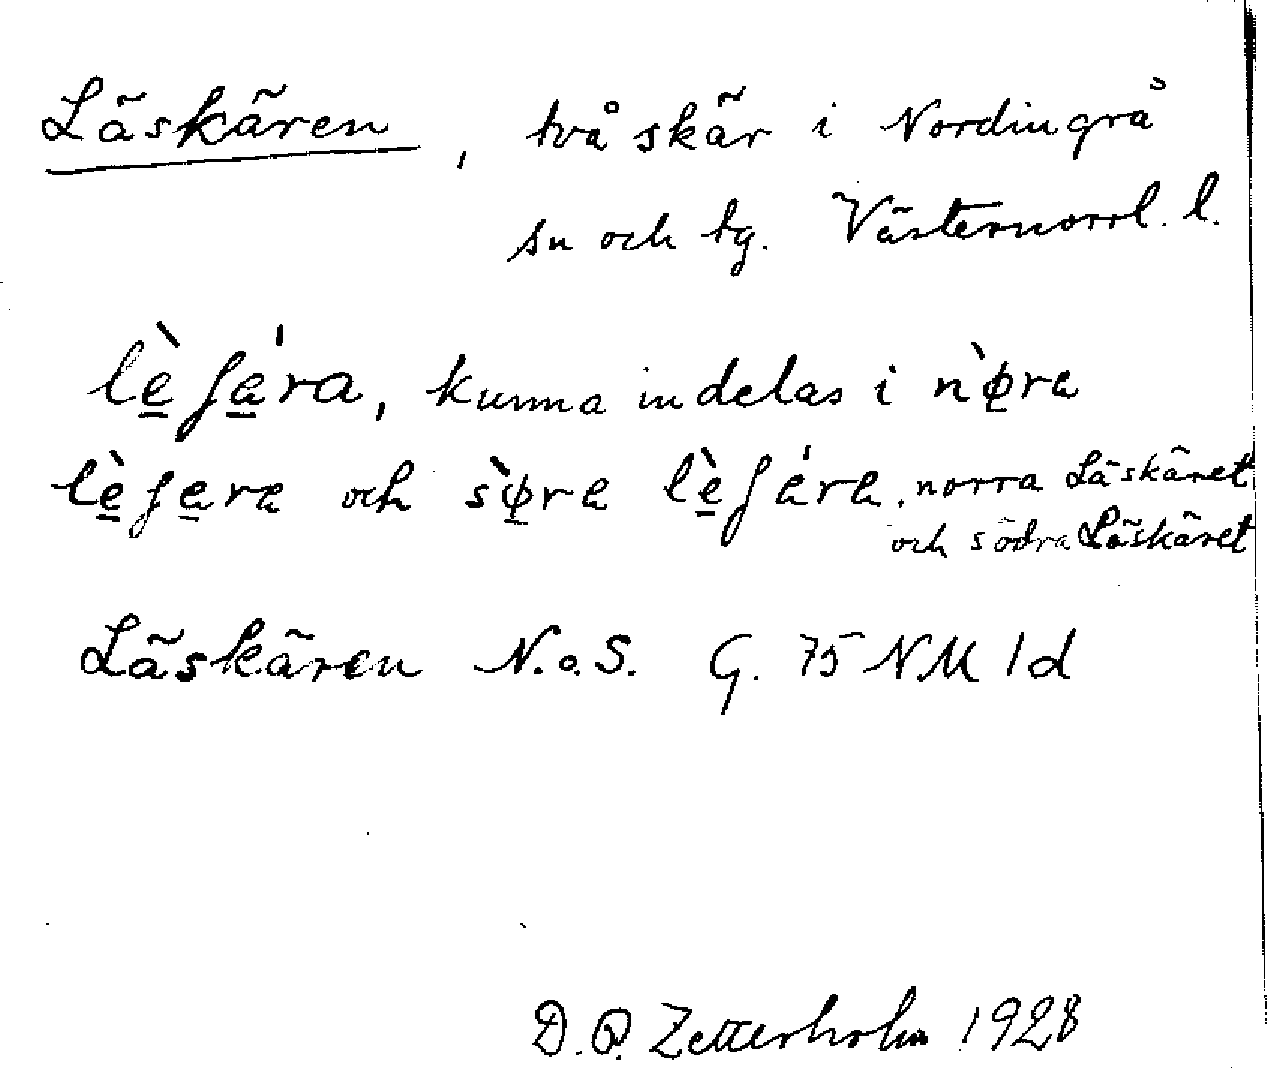 Läskären, två skär i Nordingrå
sn och tg. Västernorrl. l.
lè̱ʃa̱'ra, kunna indelas i nø̱̀ra
lè̱ʃa̱ra och sø̱̀ra lè̱ʃa'ra, norra Läskäret
och södra Läskäret
Läskären N.o.S. G. 75 NM 1d
D. O. Zetterholm 1928